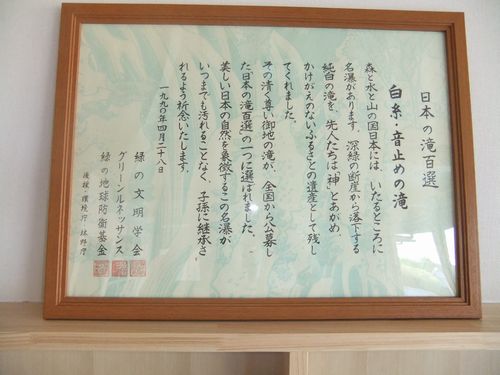 日本の滝百選
白糸・音止めの滝
森と水と山の国日本には、いたるところに
名瀑があります。深緑の断崖から落下する
純白の滝を、先人たちは「神」とあがめ、
かけがえのないふるさとの遺産として残し
てくれました。
その清く尊い御地の滝が、全国から公募し
た「日本の滝百選」の一つに選ばれました。
美しい日本の自然を象徴するこの名瀑が
いつまでも汚れることなく、子孫に継承さ
れるよう祈念いたします。
一九九〇年四月二十八日
緑の文明学会
グリーンルネッサンス
緑の地球防衛基金
後援・環境庁 林野庁